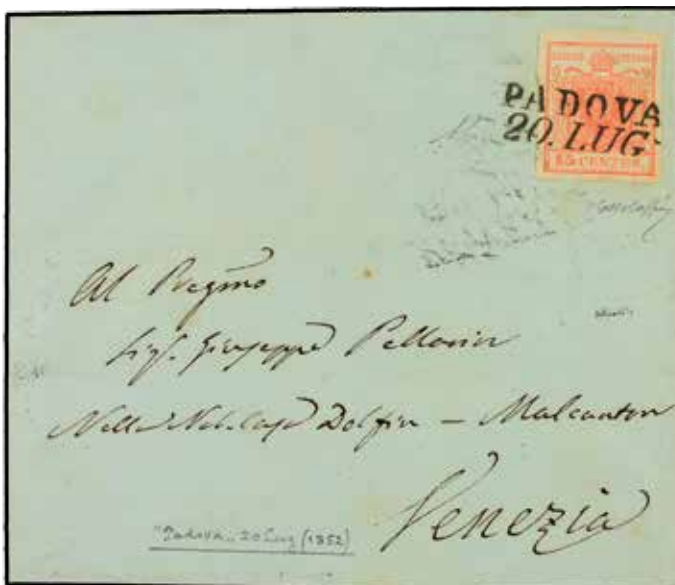 PADOVA
20. LUG
15 CENTES.
Al Pregmo
Sigr. Giuseppe Pellarin
Nella Nob. Casa Dolfin — Malcanton
Venezia
"Padova - 20 Lug (1852)